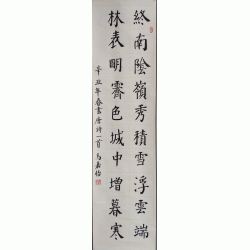 終南陰嶺秀積雪浮雲端
林表明霽色城中增暮寒
辛丑年春書唐詩一首馬嘉怡